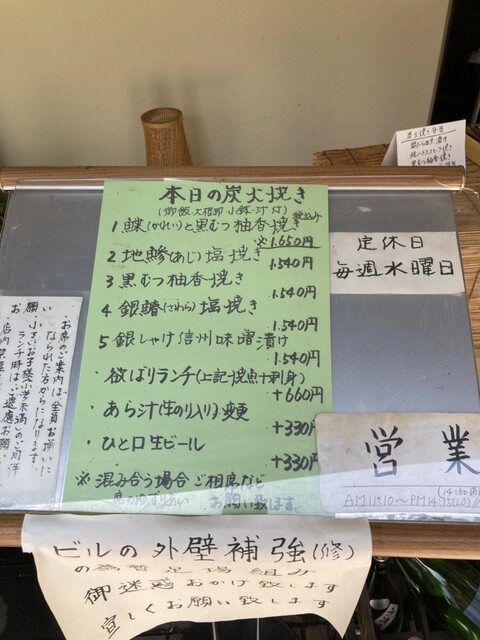 本日の炭火焼き
(御飯 大根卸 小鉢・汁付) 税込み
1 鰈(かれい)と黒むつ柚香焼き
※1.650円
2 地鯵(あじ)塩焼き
1.540円
3 黒むつ柚香焼き
1.540円
4 銀鰆(さわら)塩焼き
1.540円
5 銀しゃけ信州味噌漬け
1.540円
・欲ばりランチ(上記焼魚+刺身)
+660円
・あら汁(生のり入り)変更
+330円
・ひと口生ビール
+330円
※混み合う場合ご相席など
お願い致します。
定休日
毎週水曜日
・お席のご案内は全員お揃いに
なられた方からになります。
願い
小さいお子様(小学未満)のご同伴
ランチ時はご遠慮お願
営業
AM11:10〜PM14:15(LO)
ビルの外壁補強(修)
の為暫足場組み
御迷惑おかけ致します
宜しくお願い致します
黒むつ柚香焼き